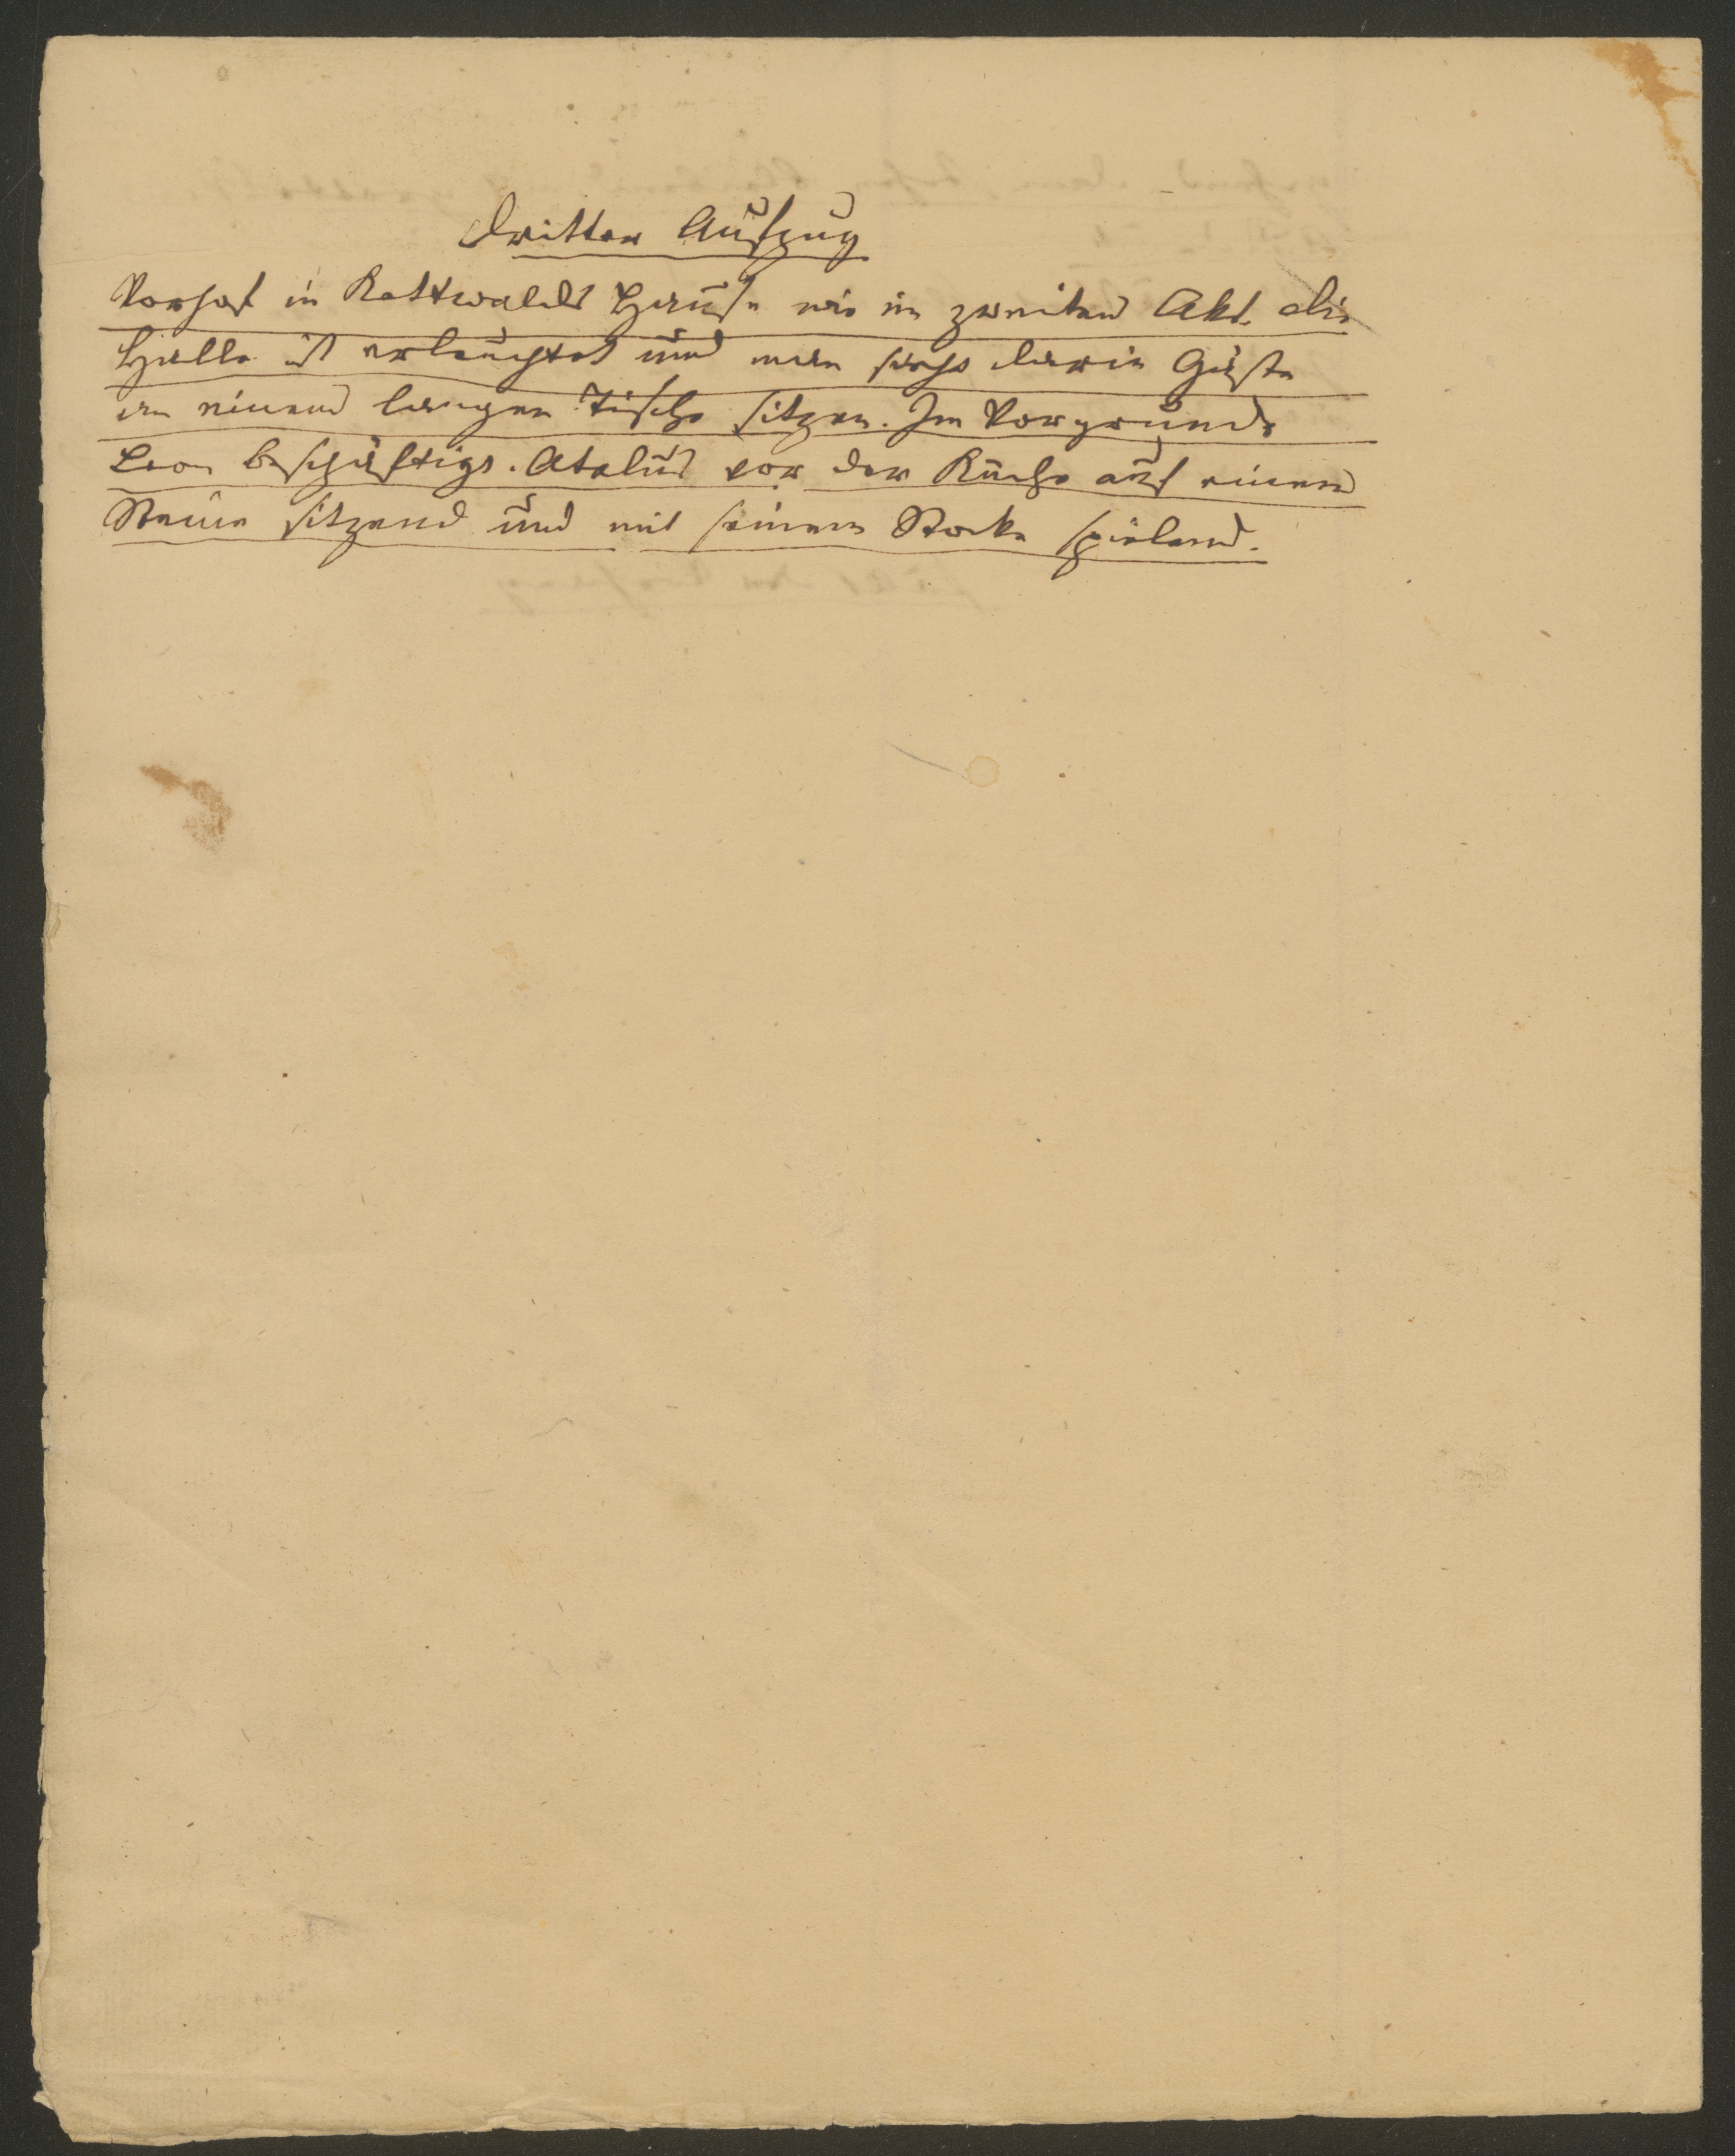 Dritter Aufzug
Vorhof in Kattwalds Hause wie im zweiten Akt. Die
Halle ist erleuchtet und man sieht darin Gäste
an einem langen Tische sitzen. Im Vorgrunde
Leon beschäftigt. Atalus vor der Küche auf einem
Steine sitzend und mit seinem Stocke spielend.